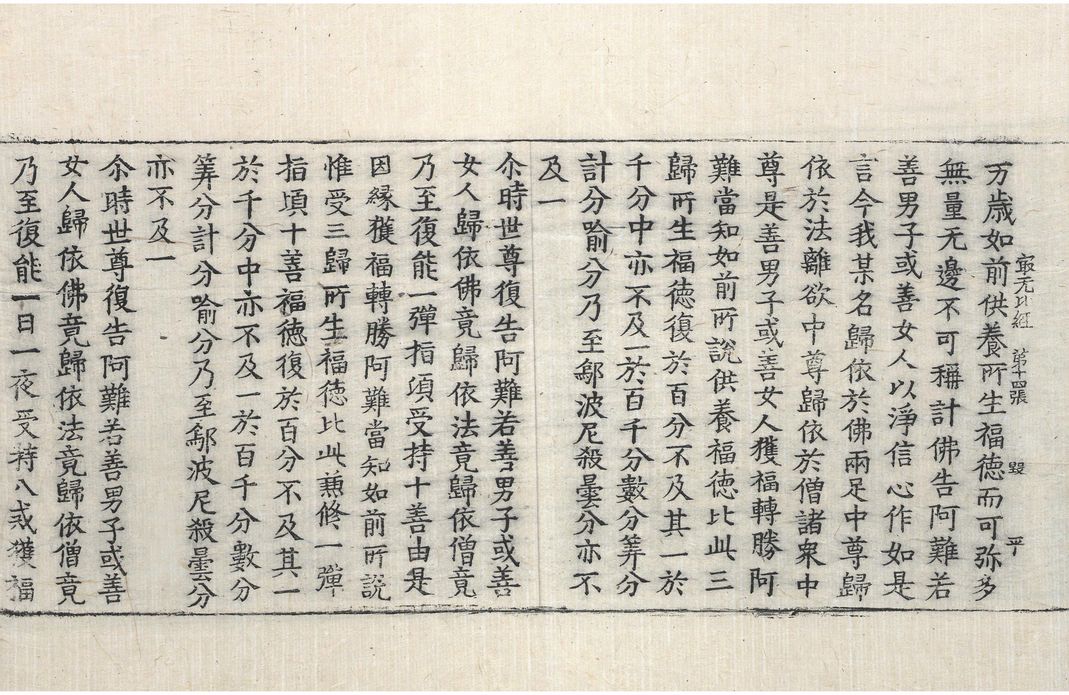 最无比經　第十四張　毀　平
万歳如前供養所生福德而可弥多
無量无邊不可稱計佛告阿難若
善男子或善女人以淨信心作如是
言今我某名歸依於佛兩足中尊歸
依於法離欲中尊歸依於僧諸衆中
尊是善男子或善女人獲福轉勝阿
難當知如前所說供養福德比此三
歸所生福德復於百分不及其一於
千分中亦不及一於百千分數分筭分
計分喻分乃至鄔波尼殺曇分亦不
及一
尒時世尊復告阿難若善男子或善
女人歸依佛竟歸依法竟歸依僧竟
乃至復能一彈指頃受持十善由是
因緣獲福轉勝阿難當知如前所說
惟受三歸所生福德比此兼修一彈
指頃十善福德復於百分不及其一
於千分中亦不及一於百千分數分
筭分計分喻分乃至鄔波尼殺曇分
亦不及一
尒時世尊復告阿難若善男子或善
女人歸依佛竟歸依法竟歸依僧竟
乃至復能一日一夜受持八戒獲福